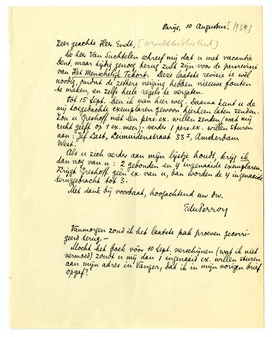 Parijs, 10 Augustus [1934]
Zeer geachte Heer Smidt, [Wereldbibliotheek]
de heer Van Suchtelen schreef mij dat u met vacantie
bent, maar tijdig genoeg terug zult zijn voor de persrevisie
van Het Menschelijk Tekort. Deze laatste revisie is wel
noodig, omdat de zetters neiging hebben nieuwe fouten
te maken, en zelfs heele regels te vergeten.
Tot 15 Sept. ben ik van hier weg. Daarna kunt u de
mij toegedachte exemplaren gewoon hierheen laten zenden.
zou u Greshoff niet een pres. ex. willen zenden (wat mij
recht geeft op 1 ex. meer) en verder 1 pers. ex. willen sturen
aan: Jef Last, 33
West.
Als u zich verder aan mijn lijstje houdt, krijg ik
dan nog van u: 2 gebonden en 4 ingenaaide exemplaren.
Krijgt Greshoff geen ex. van u, dan worden de 4 ingenaaide
teruggebracht tot 3.
Met dank bij voorbaat, hoogachtend uw dw.
EduPerron
Vanmorgen zond ik het laatste pak proeven gecorri-
geerd terug. —
Mocht het boek vóór 10 Sept. verschijnen (wat ik niet
vermoed) zoudt u mij dan 1 ingenaaid ex. willen sturen
aan mijn adres in Vanves, dat ik in mijn vorigen brief
opgaf?